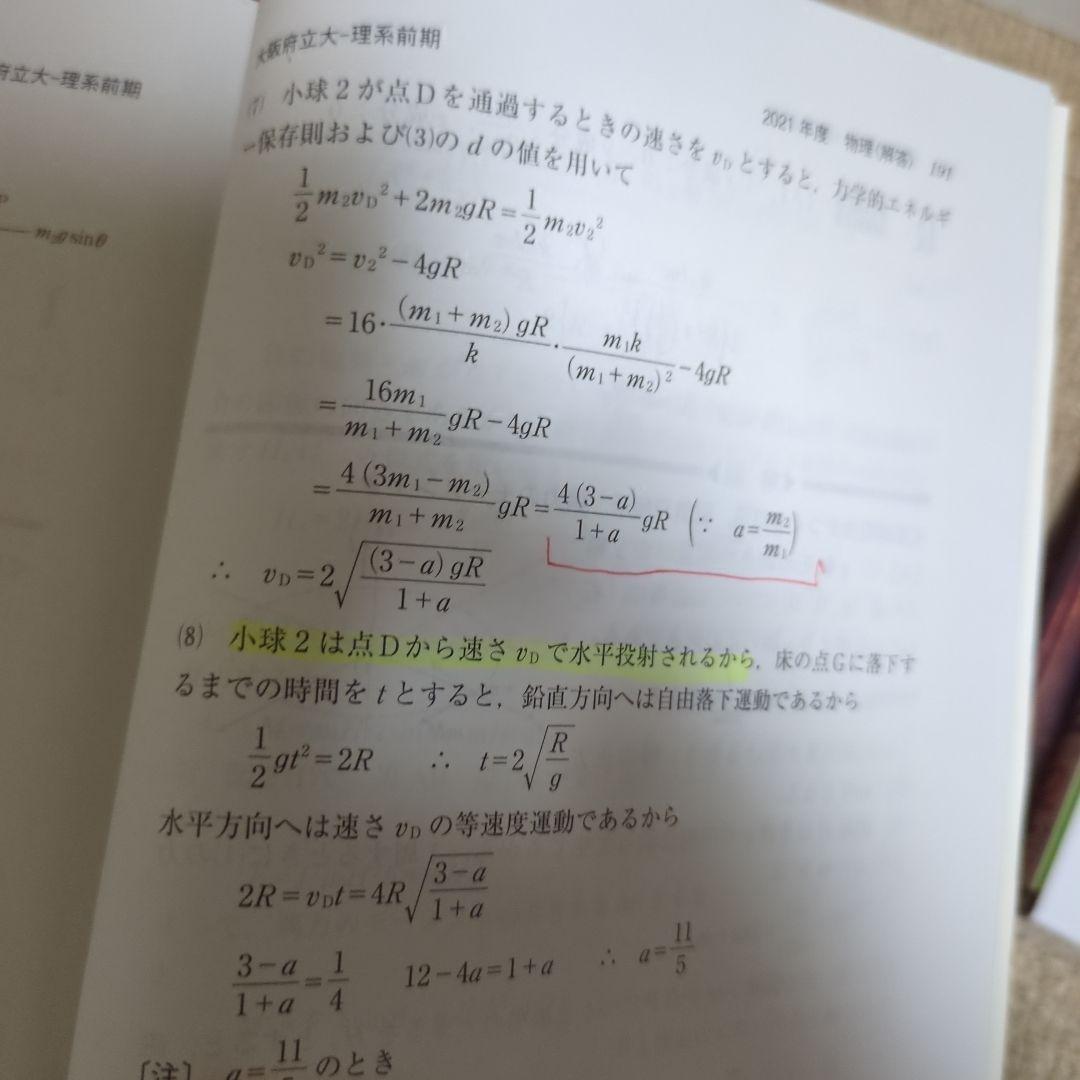 府立大-理系前期
m₂g sinθ
大阪府立大-理系前期
2021年度 物理(解答) 191
(7) 小球2が点Dを通過するときの速さをv_Dとすると,力学的エネルギ
ー保存則および(3)のdの値を用いて
1/2 m₂v_D²+2m₂gR=1/2 m₂v₂²
v_D²=v₂²-4gR
=16・(m₁+m₂)gR/k・m₁k/(m₁+m₂)²-4gR
=16m₁/(m₁+m₂) gR-4gR
=4(3m₁-m₂)/(m₁+m₂) gR=4(3-a)/(1+a) gR (∵ a=m₂/m₁)
∴ v_D=2√((3-a)gR/(1+a))
(8) 小球2は点Dから速さv_Dで水平投射されるから,床の点Gに落下す
るまでの時間をtとすると,鉛直方向へは自由落下運動であるから
1/2 gt²=2R ∴ t=2√(R/g)
水平方向へは速さv_Dの等速度運動であるから
2R=v_Dt=4R√((3-a)/(1+a))
(3-a)/(1+a)=1/4 12-4a=1+a ∴ a=11/5
[注] a=11/5のとき